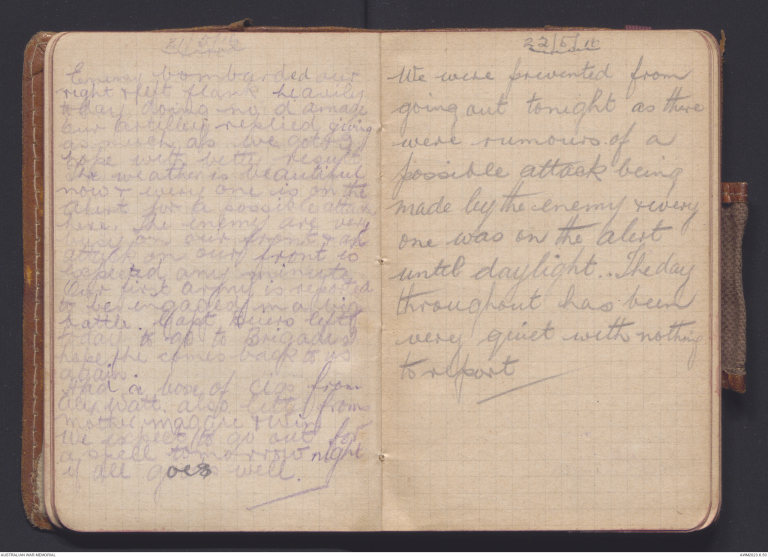 21/5/16
Enemy bombarded our
right & left flank heavily
today doing no damage
our artillery replied giving
as much as we got & I
hope with better result
The weather is beautiful
now & every one is on the
alert for a possible attack
here. The enemy are very
busy on our front & an
attack on our front is
expected any minute.
Our first army is reported
to be engaged in a big
battle. Capt left
today to go to Brigade I
hope he comes back to us
again.
Had a box of cigs from
Watt. also letter from
mother, & Win
We expect to go out for
a spell tomorrow night
if all goes well.
22/5/16
We were prevented from
going out tonight as there
were rumours of a
possible attack being
made by the enemy & every
one was on the alert
until daylight.. The day
throughout has been
very quiet with nothing
to report
AUSTRALIAN WAR MEMORIAL